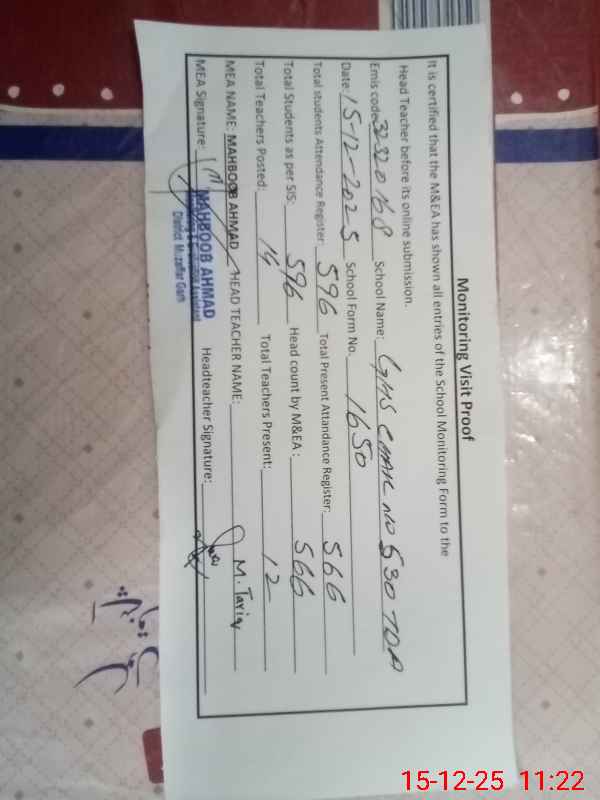 Monitoring Visit Proof
It is certified that the M&EA has shown all entries of the School Monitoring Form to the
Head Teacher before its online submission.
Emis code: 32320168 School Name: GHS CHAK NO 530 TDA
Date: 15-12-2025 School Form No. 1650
Total students Attendance Register: 596 Total Present Attandance Register: 566
Total Students as per SIS: 596 Head count by M&EA : 566
Total Teachers Posted: 14 Total Teachers Present: 12
MEA NAME: MAHBOOB AHMAD HEAD TEACHER NAME: M. Tariq
MEA Signature: Headteacher Signature:
MAHBOOB AHMAD
District Muzaffar Garh
15-12-25 11:22